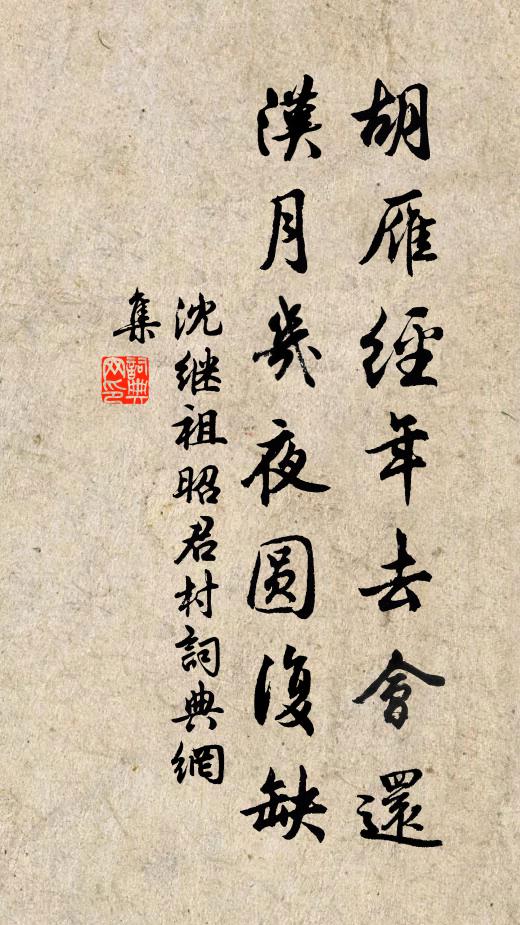 胡雁經年去會還
漢月幾夜圓復缺
沈继祖昭君村詞典網
集
詞典
网印